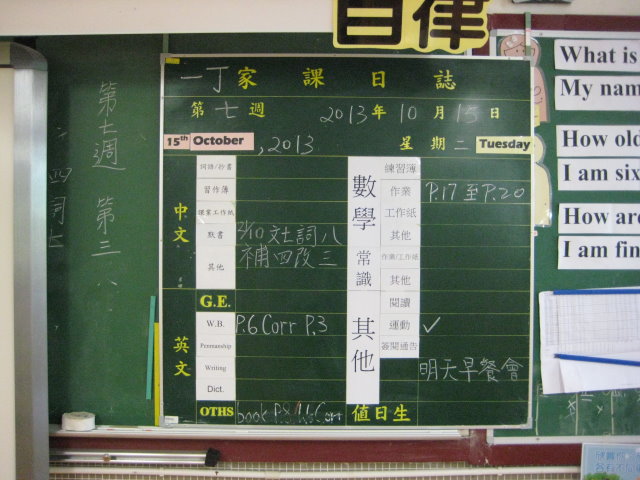 自律
一丁家課日誌
第七週 2013年10月15日
15th October, 2013 星期二 Tuesday
中文
詞語/抄書
習作簿
課業工作紙
默書
補四改三
其他
G.E.
英文
W.B. P.6 Corr P.3
Penmanship
Writing
Dict.
OTHS
數學
練習簿
作業 P.17至P.20
工作紙
其他
常識
作業/工作紙
其他
其他
閱讀
運動 ✓
簽閱通告
明天早餐會
值日生
第七週 第三
What is
My nam
How old
I am six
How are
I am fin